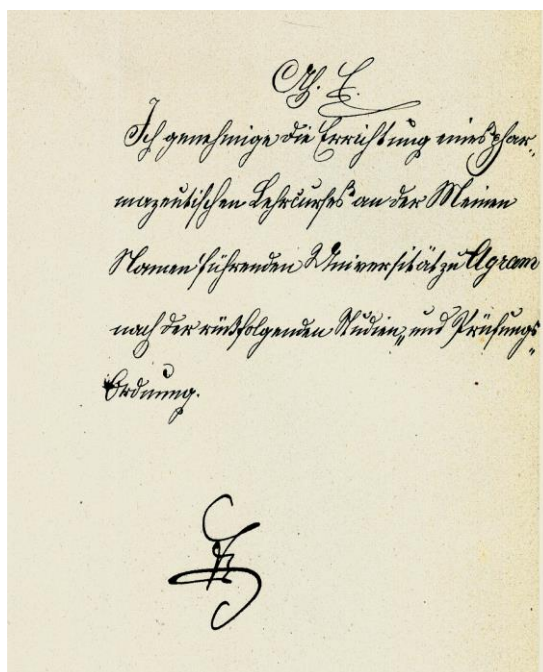 A. E.
Ich genehmige die Errichtung eines phar„
mazeutischen Lehrcurses an der Meinen
Namen führenden Universität zu Agram
nach der rückfolgenden Studien„ und Prüfungs„
Ordnung.